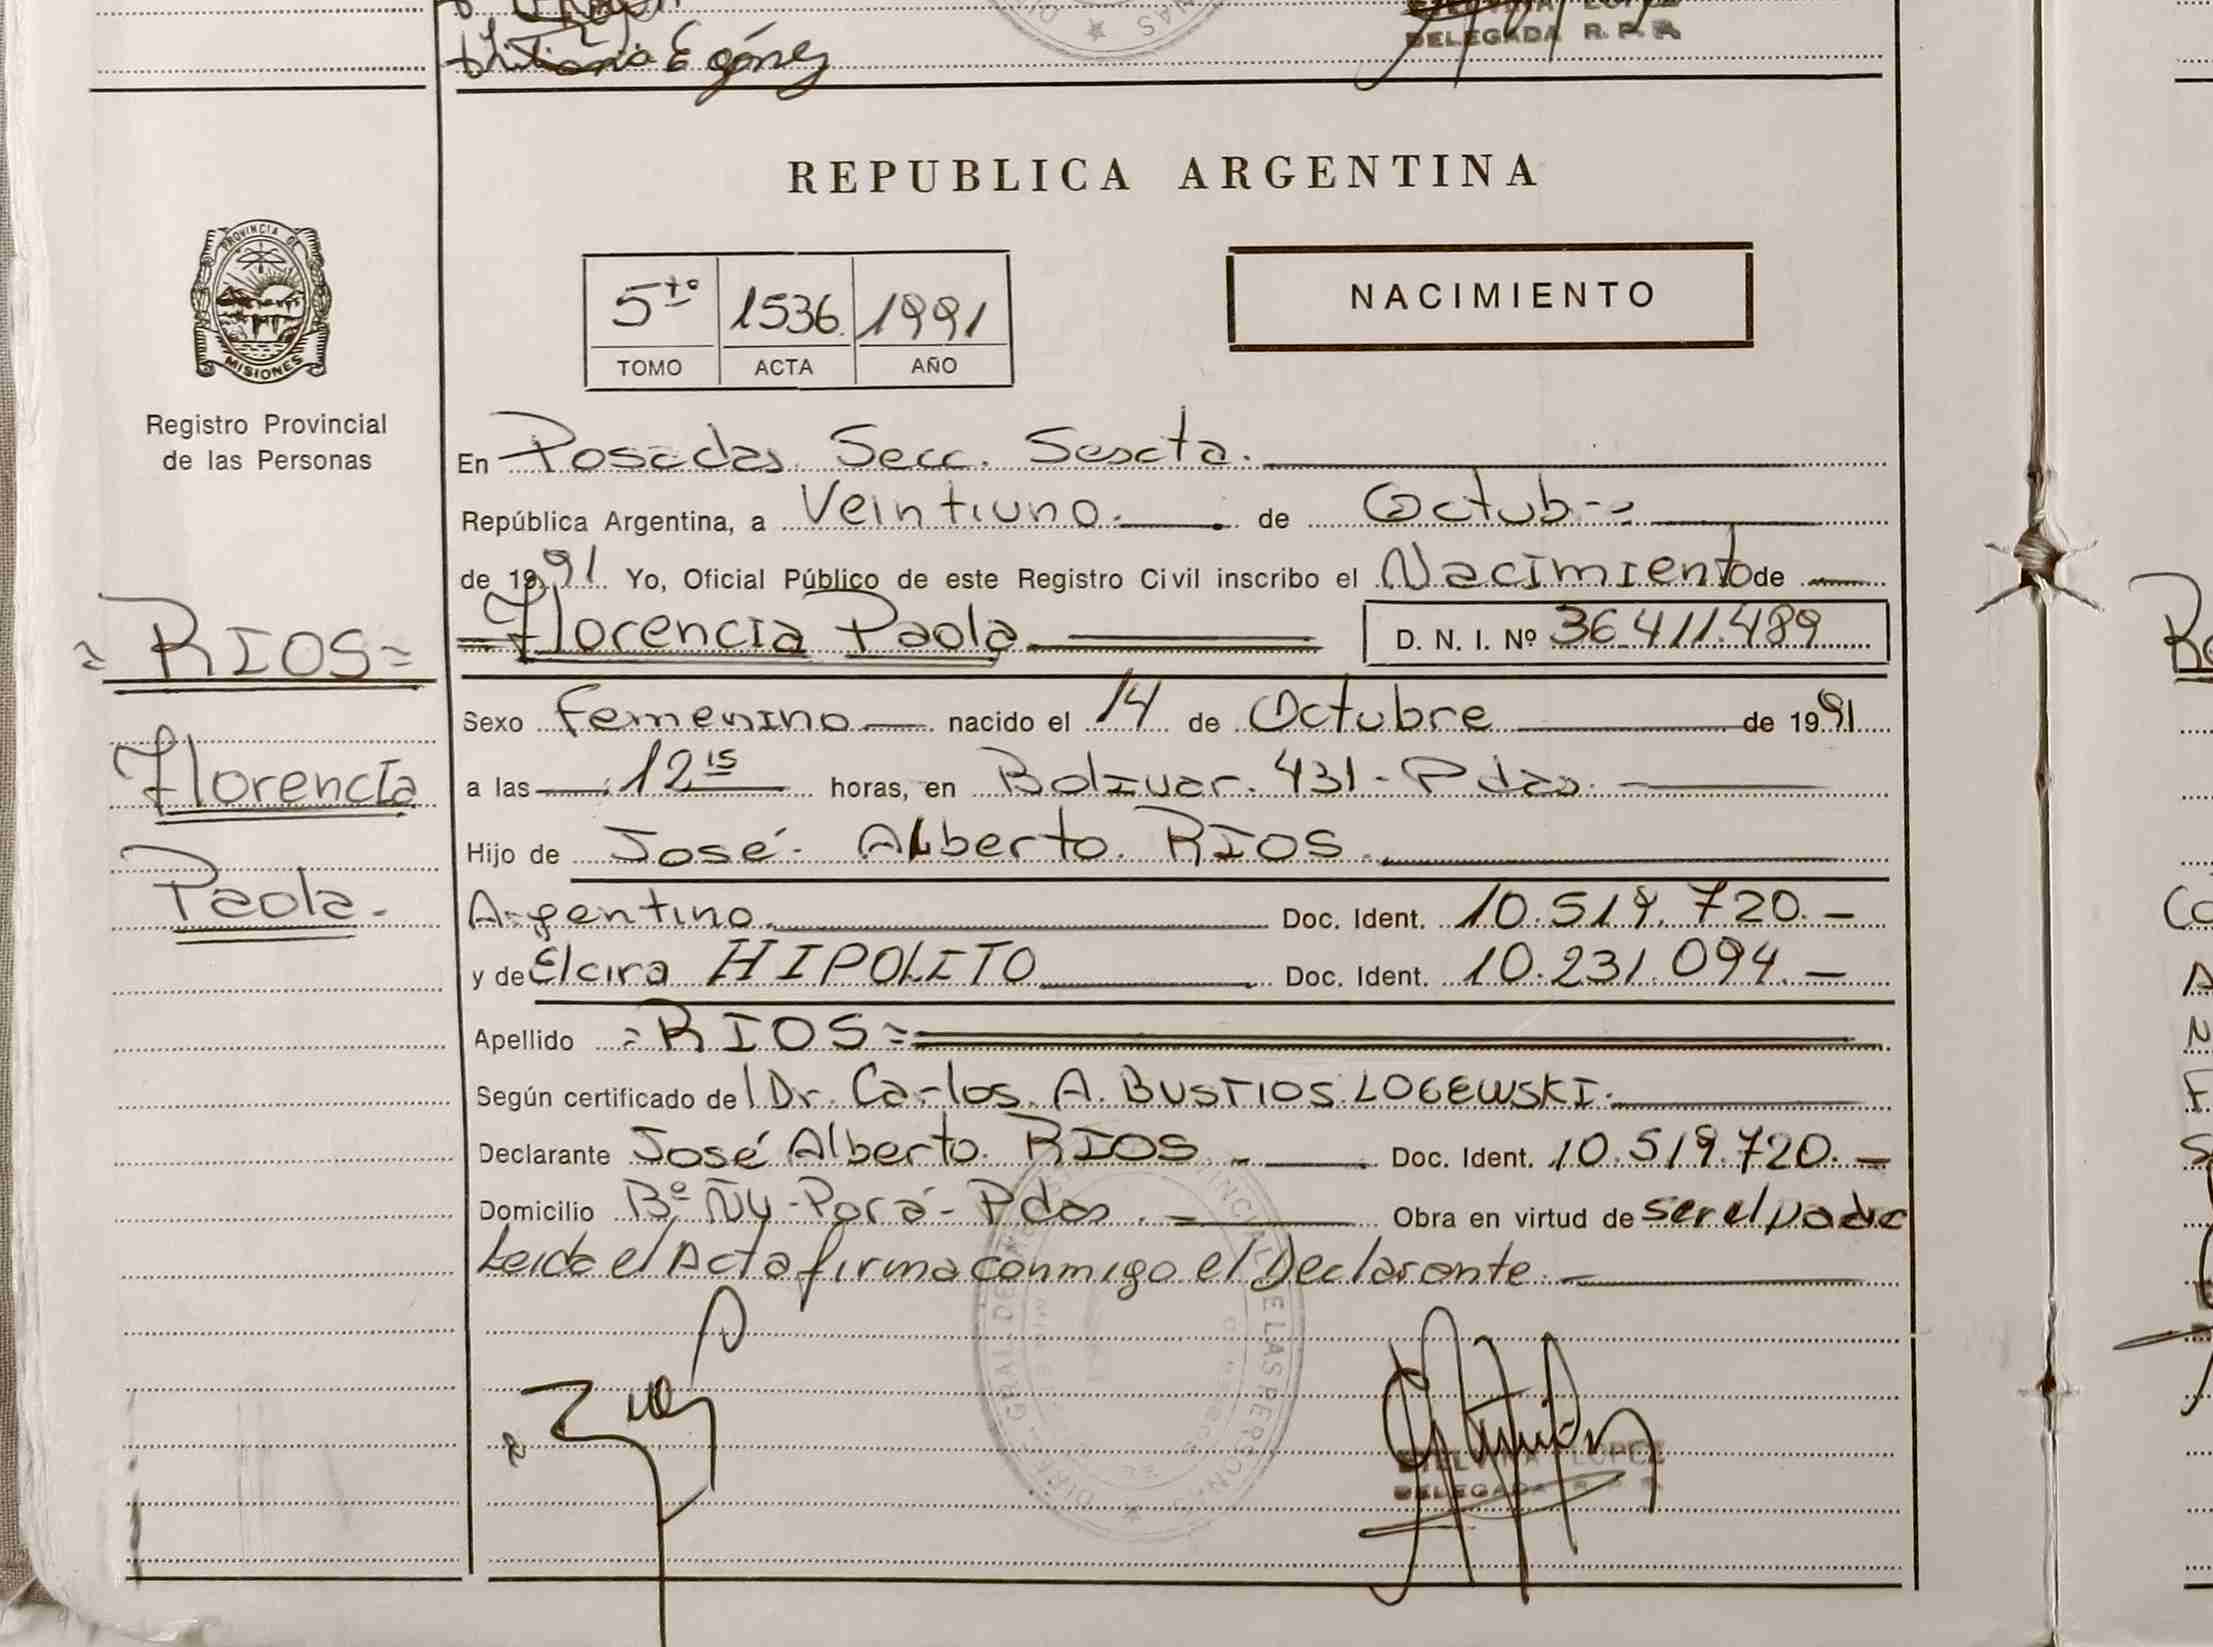 DELEGADA R. P. P.
REPUBLICA ARGENTINA
PROVINCIA DE
MISIONES
Registro Provincial
de las Personas
5to 1536 1991
TOMO ACTA AÑO
NACIMIENTO
En Posadas Secc. Sexta.
República Argentina, a Veintiuno. de Octub--
de 1991 Yo, Oficial Público de este Registro Civil inscribo el Nacimiento de
= Florencia Paola D. N. I. Nº 36.411.489
= RIOS =
Florencia
Paola.
Sexo Femenino nacido el 14 de Octubre de 1991
a las 12 15 horas, en Bolivar. 431 - Pdas.
Hijo de José Alberto. RIOS.
Argentino. Doc. Ident. 10.519.720. -
y de Elcira HIPOLITO Doc. Ident. 10.231.094. -
Apellido = RIOS =
Según certificado del Dr. Carlos. A. BUSTIOS LOGEWSKI.
Declarante José Alberto. RIOS. - Doc. Ident. 10.519.720. -
Domicilio Bº Ñu - Porá - Pdas. Obra en virtud de ser el padre
Leida el Acta firma conmigo el Declarante. -
LOPEZ
DELEGADA